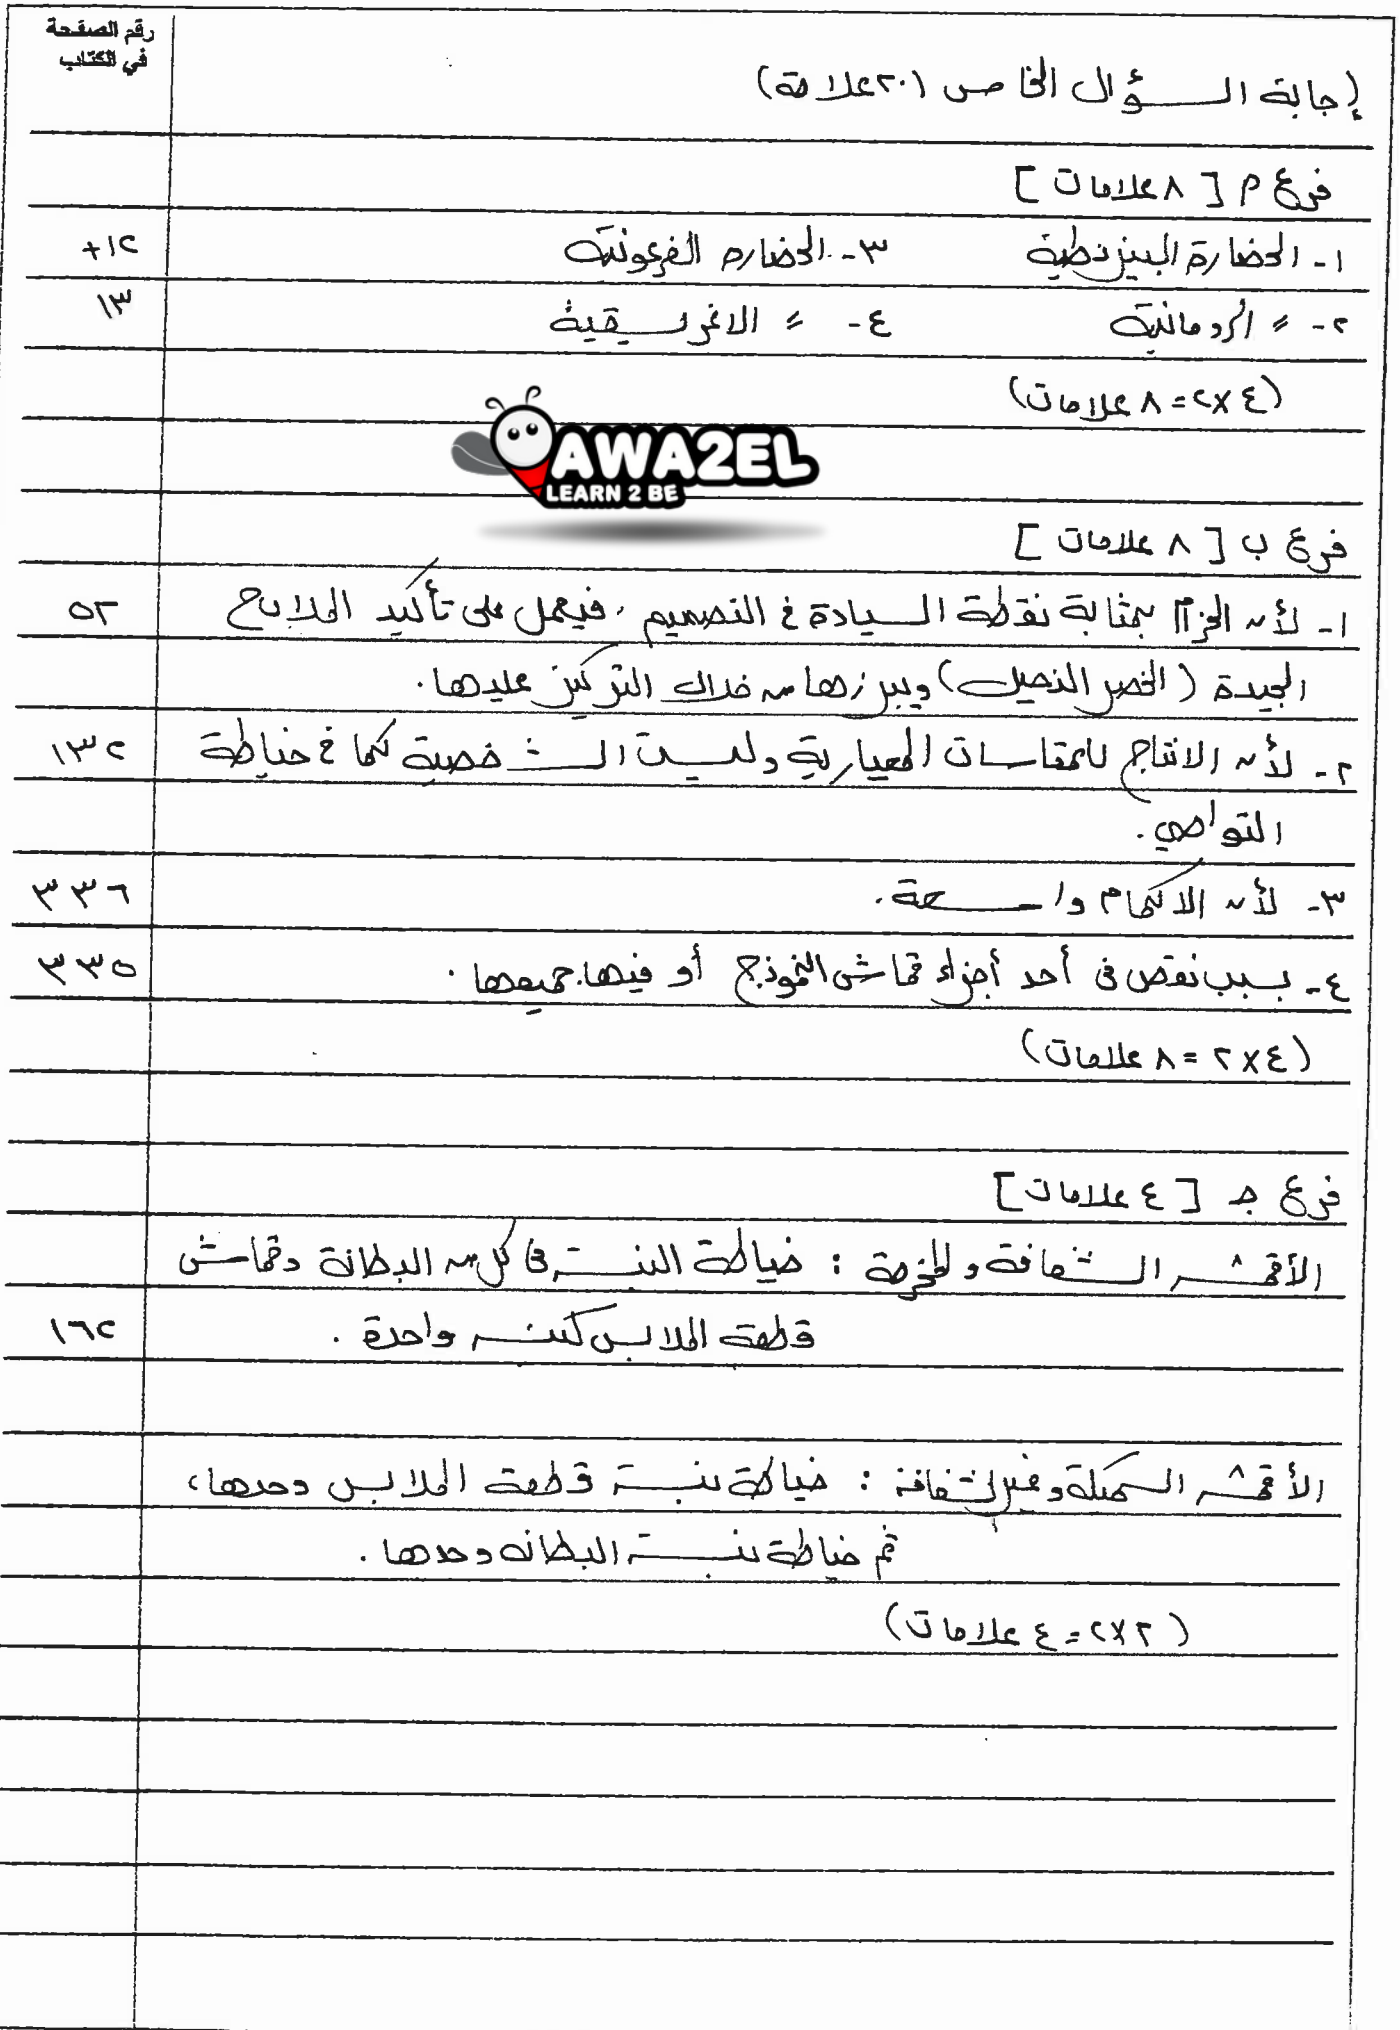 رقم الصفحة
في الكتاب
إجابة السؤال الخامس (٢٠ علامة)
فرع م [ ٨ علامات ]
١- الحضارة البيزنطية ٣- الحضاره الفرعونية ١٢+
٢- // الرومانية ٤- // الاغريقية ١٣
(٤×٢=٨ علامات)
AWA2EL
LEARN 2 BE
فرع ب [ ٨ علامات ]
١- لأن الحزام بمثابة نقطة السيادة في التصميم، فيعمل على تأكيد الملامح ٥٢
الجيدة (الخصر النحيل) ويبرزها من خلال التركيز عليها.
٢- لأن الانتاج للمقاسات المعيارية وليست الشخصية كما في خياطة ١٣٢
التواصي.
٣- لأن الاكمام واسعة. ٣٣٦
٤- بسبب نقص في أحد أجزاء قماش النموذج أو فيها جميعها. ٣٣٥
(٤×٢=٨ علامات)
فرع ج [ ٤ علامات ]
الأقمشه الشفافة والمخرمة : خياطة البنسة في كل من البطانة وقماش
قطعة الملابس كبنسه واحدة. ١٦٢
الأقمشه السميكة وغير الشفافه : خياطة بنسة قطعة الملابس وحدها،
ثم خياطة بنسة البطانه وحدها.
(٢×٢=٤ علامات)